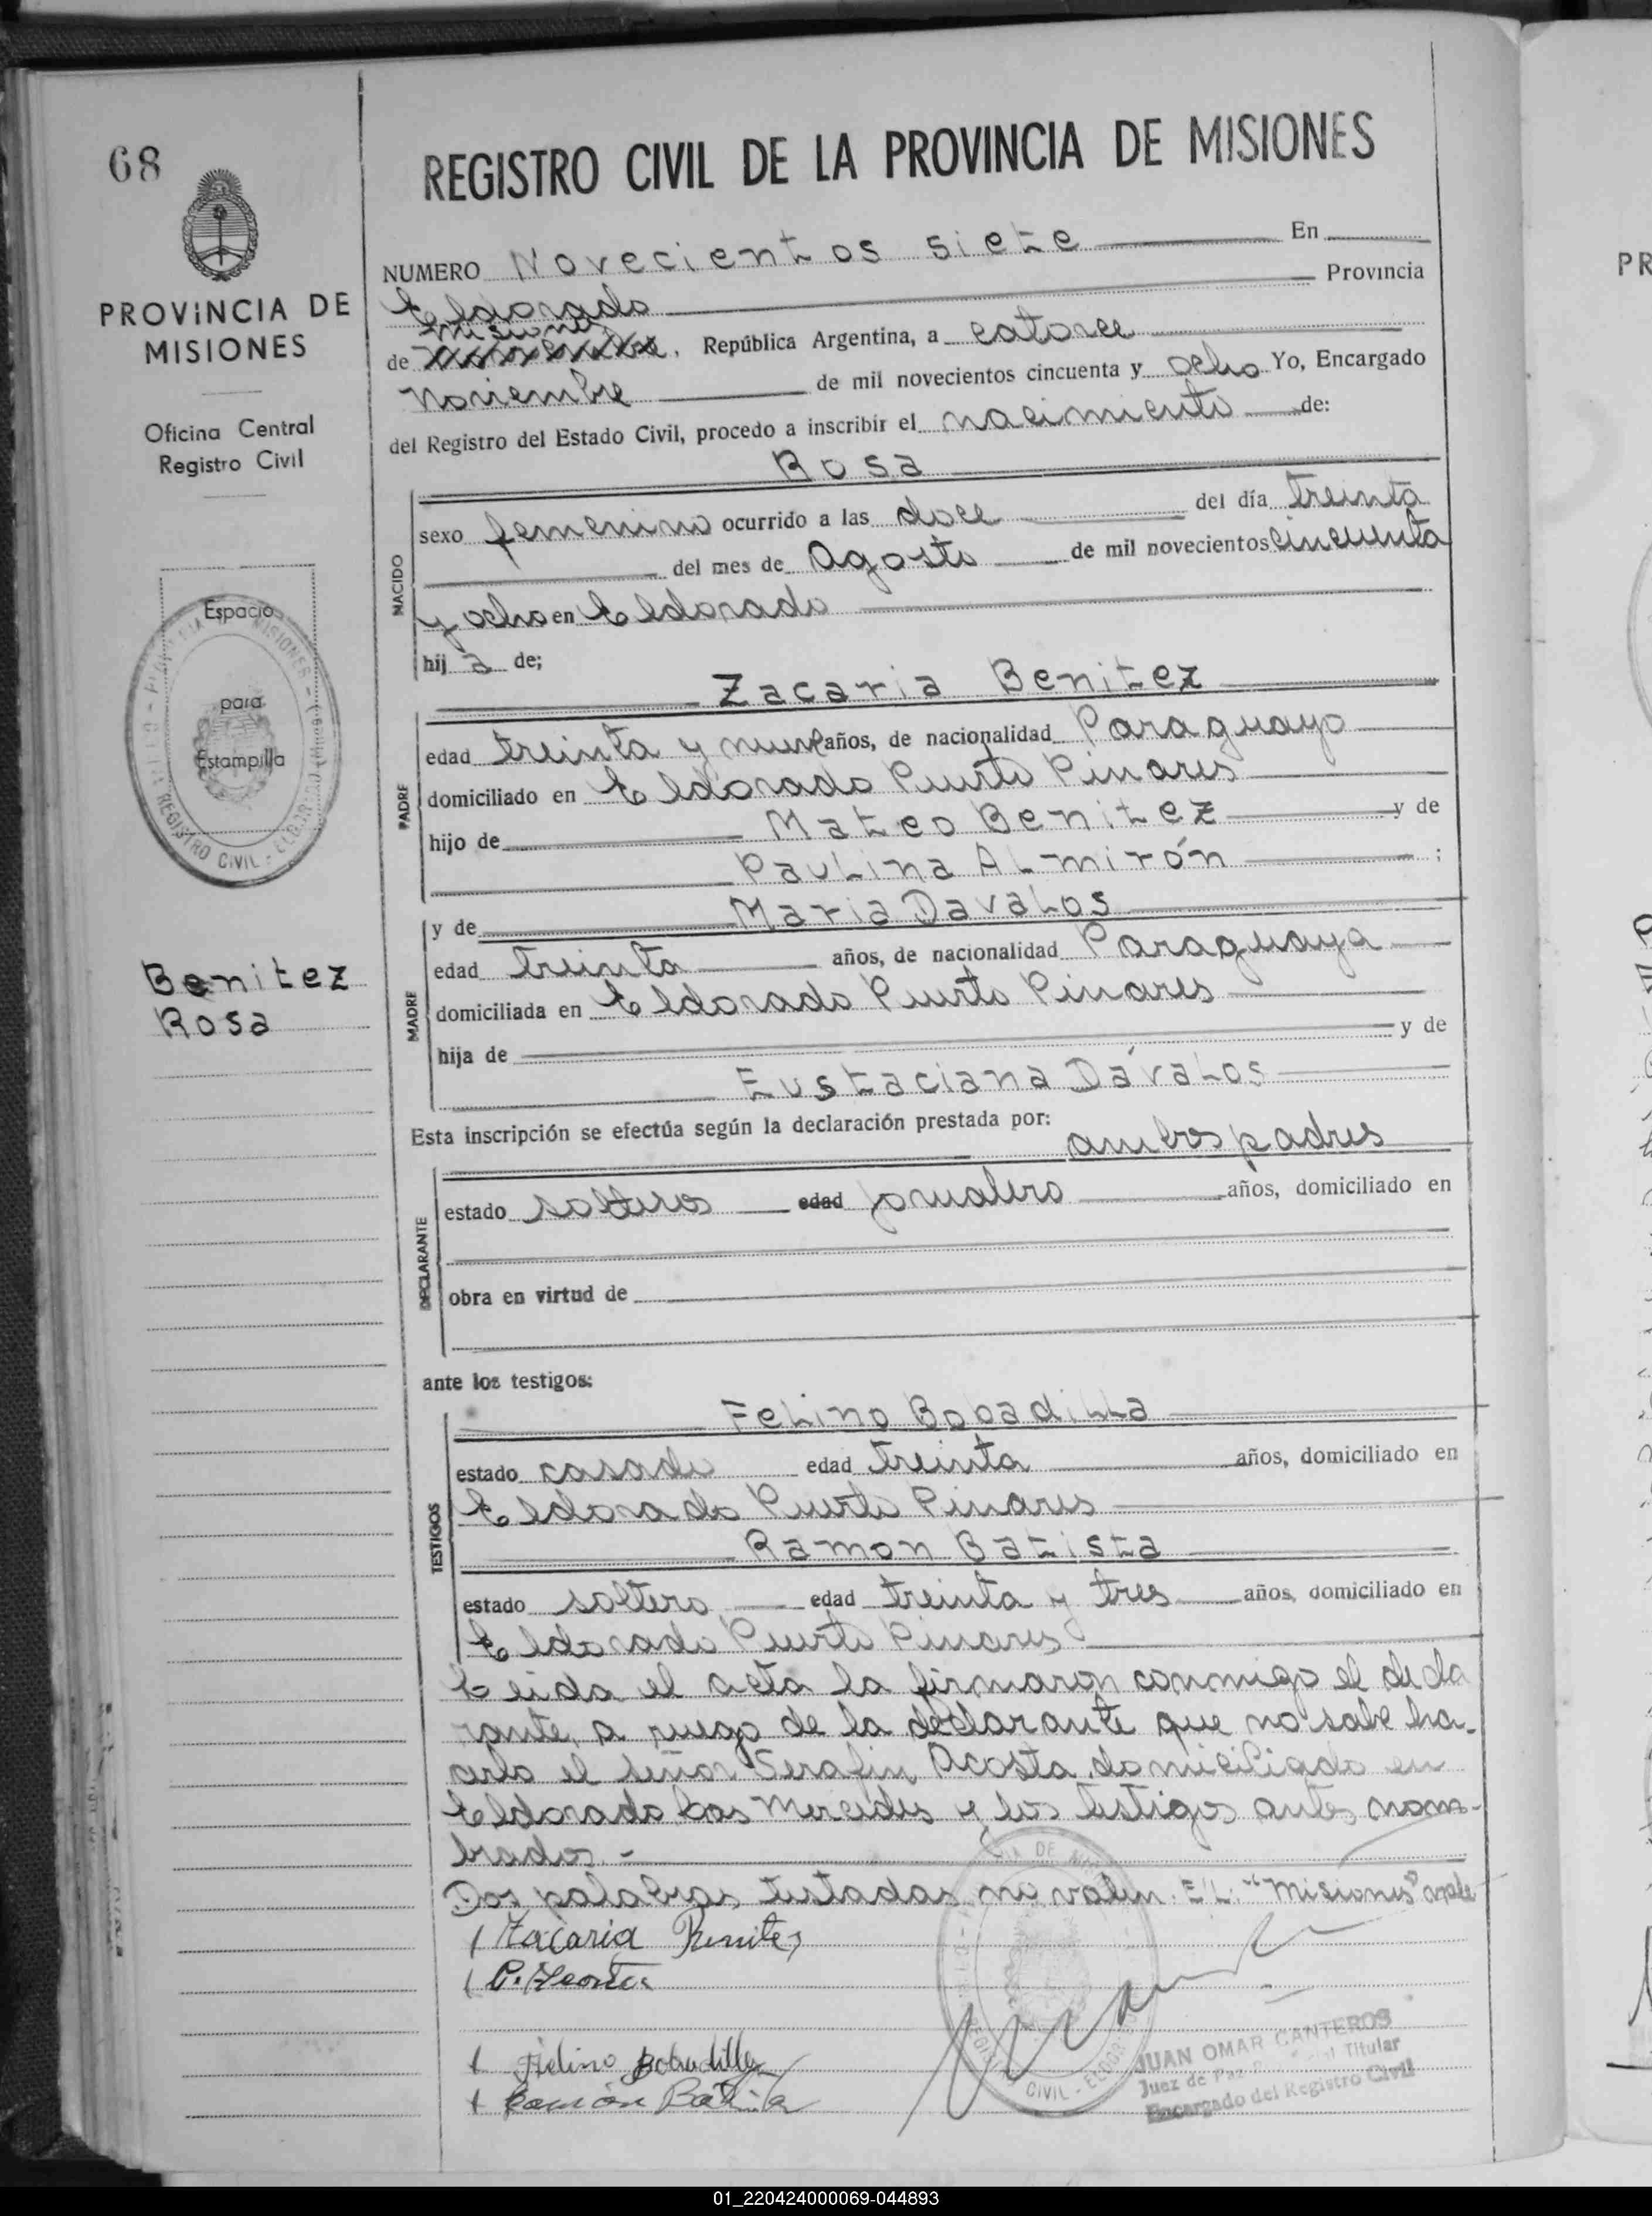 68
REGISTRO CIVIL DE LA PROVINCIA DE MISIONES
PROVINCIA DE
MISIONES
Oficina Central
Registro Civil
Espacio
para
Estampilla
Benitez
Rosa
NUMERO Novecientos siete En
Eldorado Provincia
misiones
de , República Argentina, a catorce
noviembre de mil novecientos cincuenta y ocho Yo, Encargado
del Registro del Estado Civil, procedo a inscribir el nacimiento de:
Rosa
NACIDO
sexo femenino ocurrido a las doce del día treinta
del mes de Agosto de mil novecientos cincuenta
y ocho en Eldorado
hij a de;
Zacaria Benitez
PADRE
edad treinta y nueve años, de nacionalidad Paraguayo
domiciliado en Eldorado Puerto Pinares
hijo de Mateo Benitez y de
Paulina Almirón ;
MADRE
y de Maria Davalos
edad treinta años, de nacionalidad Paraguaya
domiciliada en Eldorado Puerto Pinares
hija de y de
Eustaciana Dávalos
Esta inscripción se efectúa según la declaración prestada por:
ambos padres
DECLARANTE
estado solteros edad jornalero años, domiciliado en
obra en virtud de
ante los testigos:
TESTIGOS
Felino Bobadilla
estado casado edad treinta años, domiciliado en
Eldorado Puerto Pinares
Ramon Batista
estado soltero edad treinta y tres años, domiciliado en
Eldorado Puerto Pinares
Leida el acta la firmaron conmigo el decla
rante, a ruego de la declarante que no sabe ha-
cerlo el señor Serafin Acosta domiciliado en
Eldorado Las Mercedes y los testigos antes nom-
brados.-
Dos palabras testadas no valen. E/L. "Misiones" vale
Zacaria Benitez
Felino Bobadilla
Ramón Batista
CIVIL - ELDORADO
JUAN OMAR CANTEROS
Juez de Paz Titular
Encargado del Registro Civil
01_220424000069-044893